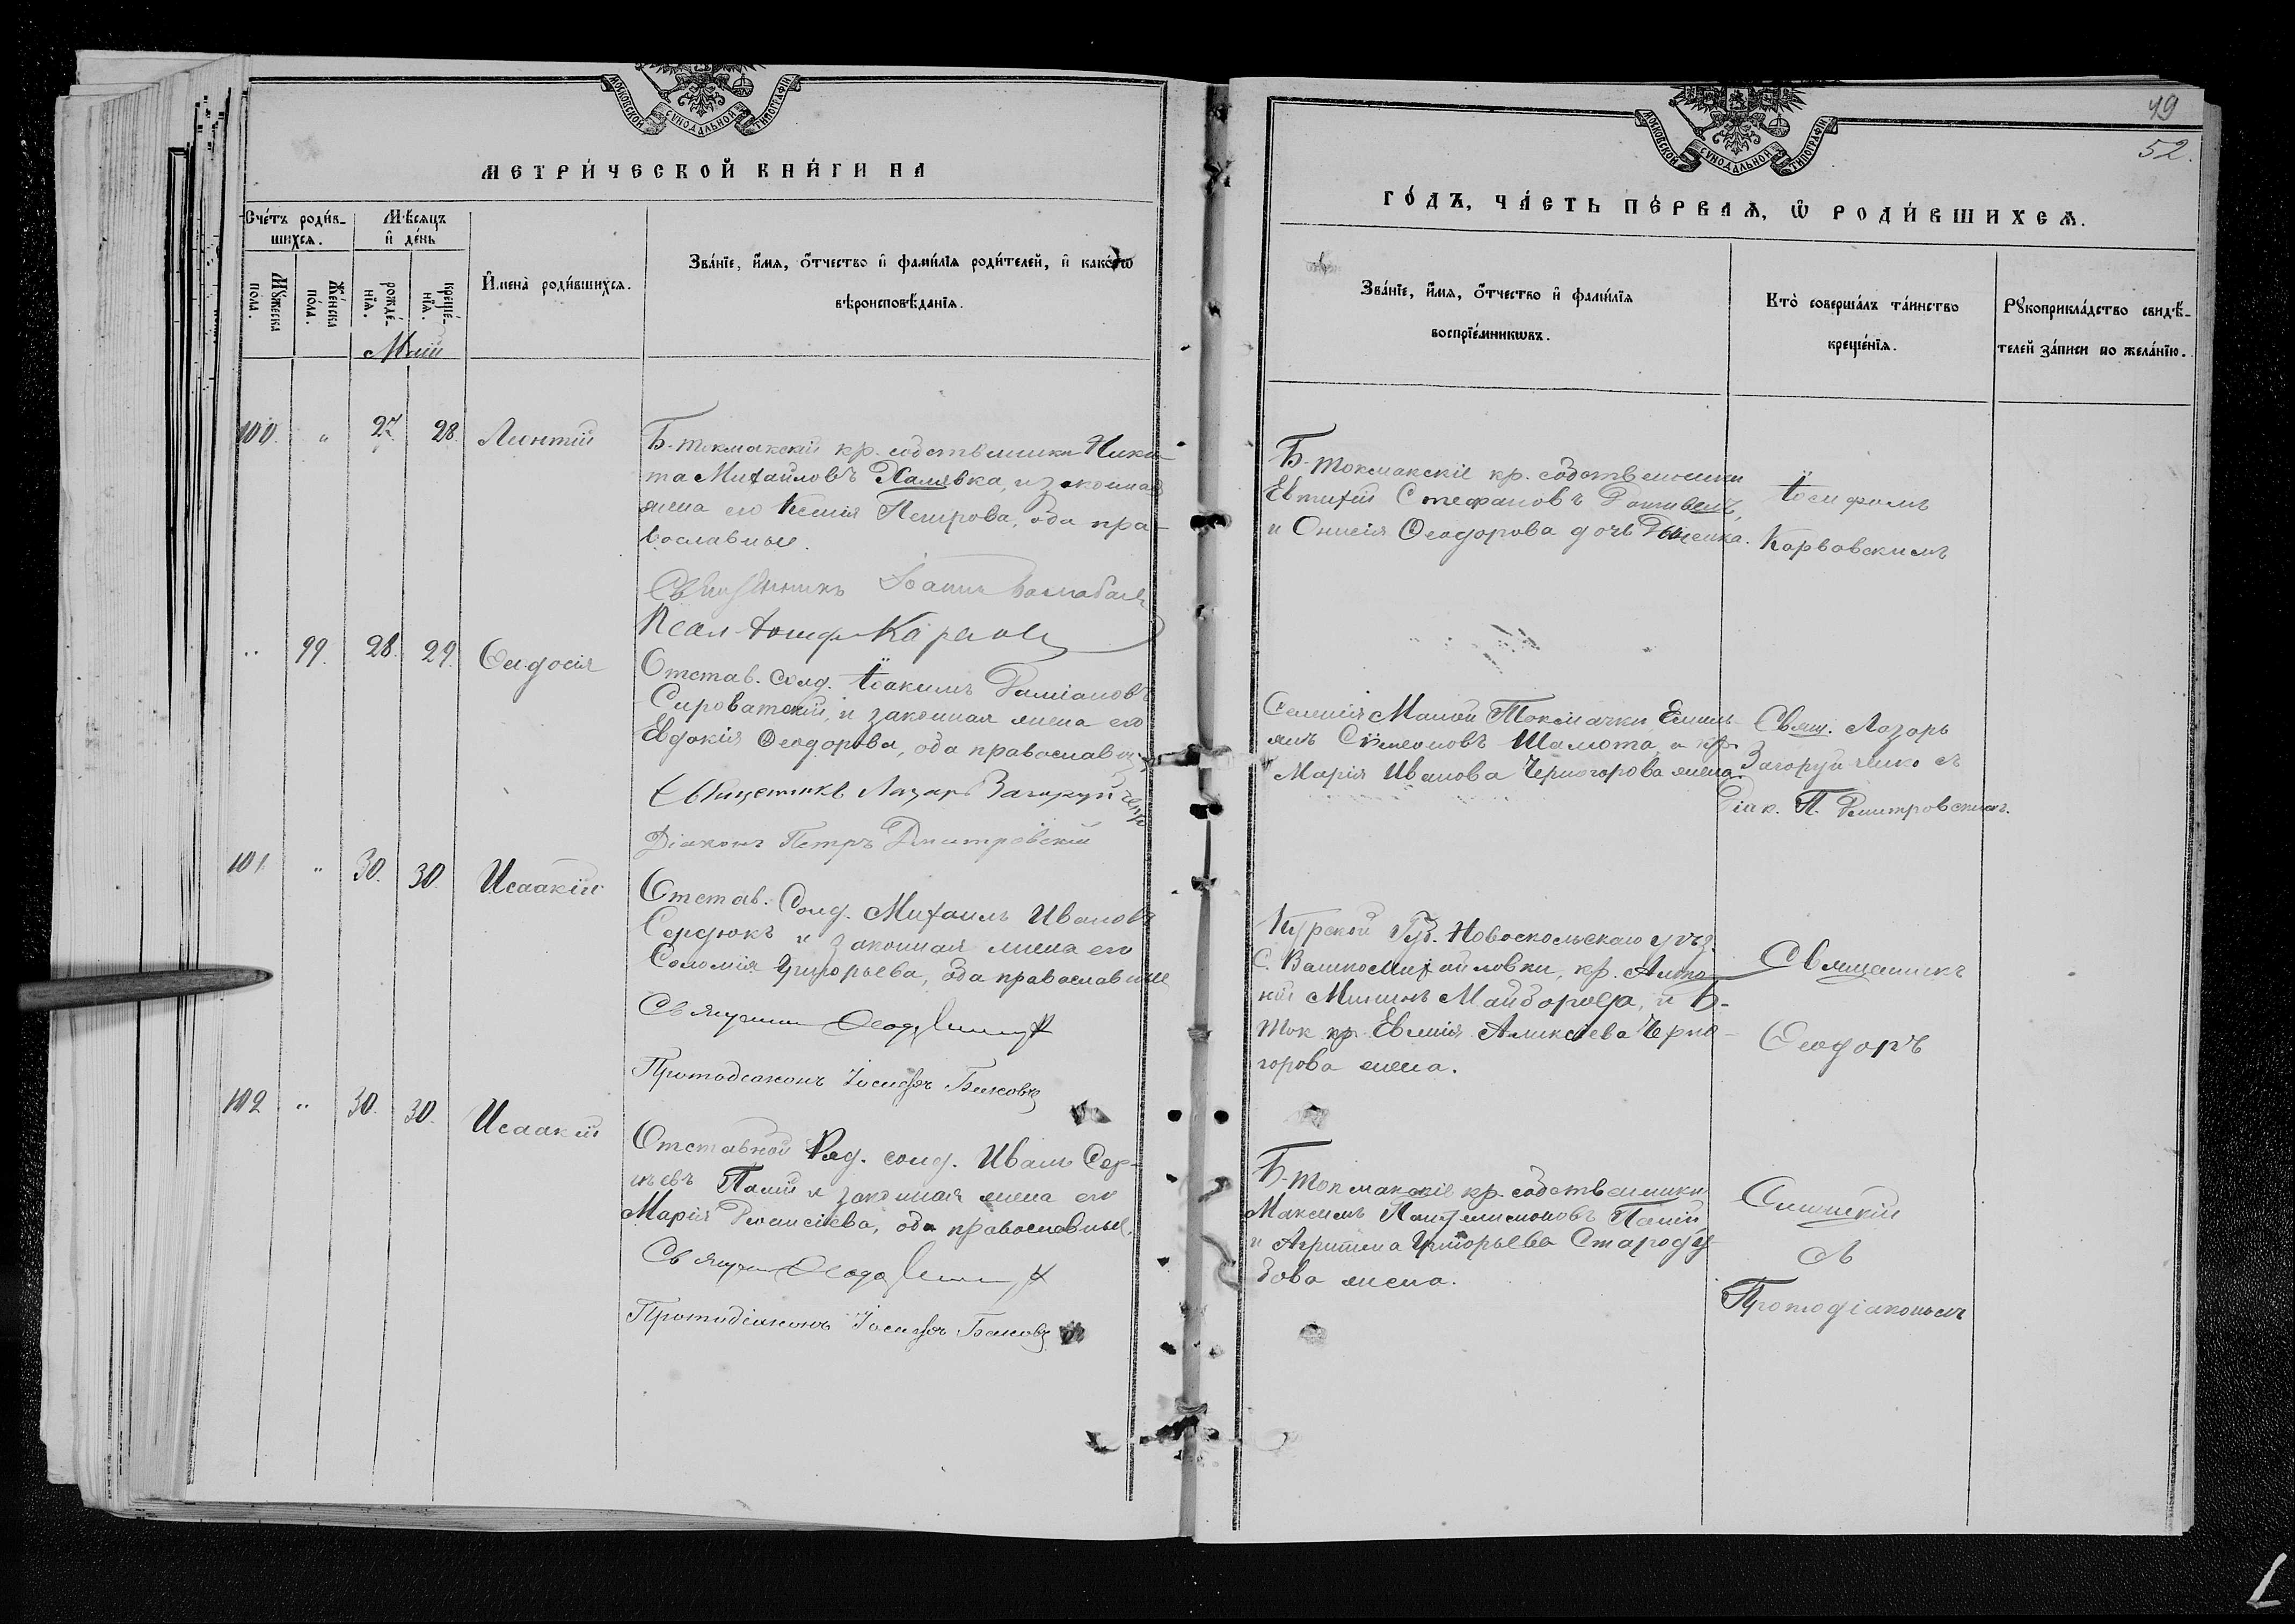 МОСКОВСКОЙ СѴНОДАЛЬНОЙ ТИПОГРАФІИ
МЕТРИ́ЧЕСКОЙ КНИ́ГИ НА
Сче́тъ роди́в-
шихсѧ.
Мѣ́сяцъ
и҆ де́нь
Мꙋ́жеска
по́ла.
Же́нска
по́ла.
рожде́-
нїѧ.
креще́-
нїѧ.
И҆мена̀ роди́вшихсѧ.
Зва́нїе, и҆́мѧ, ѻ҆́тчество и҆ фами́лїѧ роди́телей, и҆ како́гѡ
вѣроисповѣ́данїѧ.
Май
100. " 27. 28. Леонтій
Б-токмакскій кр. собственникъ Ники-
та Михайловъ Халявка, и законная
жена его Ксенія Петрова, оба пра-
вославные.
Священникъ Іоаннъ
Псал. Іосиф
" 99. 28. 29. Ѳеодосія
Отстав. солд. Іоакимъ Даміановъ
Сироватскій, и законная жена его
Евдокія Ѳеодорова, оба православны
Священникъ Лазарь Загоруйченко
Діаконъ Петръ Дмитровскій
101. " 30. 30. Исаакій
Отстав. Солд. Михаилъ Ивановъ
Сердюкъ и законная жена его
Соломія Григорьева, оба православные
Священник Ѳеодор
Протодіаконъ Іосифъ
102 " 30. 30. Исаакій
Отставной Ряд. солд. Иванъ Сер-
гѣевъ Палій и законная жена его
Марія, оба православные.
Священ Ѳеодор
Протодіаконъ Іосифъ
49
52.
МОСКОВСКОЙ СѴНОДАЛЬНОЙ ТИПОГРАФІИ
ГО́ДЪ, ЧА́СТЬ ПЕ́РВАѦ, Ѽ РОДИ́ВШИХСѦ.
Зва́нїе, и҆́мѧ, ѻ҆́тчество и҆ фами́лїѧ
воспрїе́мникѡвъ.
Кто̀ соверша́лъ та́инство
креще́нїѧ.
Рꙋкоприкла́дство свидѣ́-
телей за́писи по жела́нїю.
Б-токмакскіе кр. собственники
Евтихій Стефановъ
и Онисія Ѳеодорова дочь
Іосифомъ
Карвовскимъ
Селенія Малой Токмачки Емиль-
янъ Сѵмеоновъ Шамота, и кр.
Марія Иванова Черногорова жена.
Свящ. Лазарь
Загоруйченко съ
Діак. П. Дмитровскимъ.
Курской Губ. Новоскольскаго уѣзд.
С. Михайловки, кр.
Майборода, и Б-
Ток кр. Евгенія Алексіева Черно-
горова жена.
Священникъ
Ѳеодоръ
Б-токмакскіе кр. собственники
Максимъ Пантелимоновъ Палій
и Агрипина Григорьева Староду-
бова жена.
Синицкій
съ
Протодіакономъ